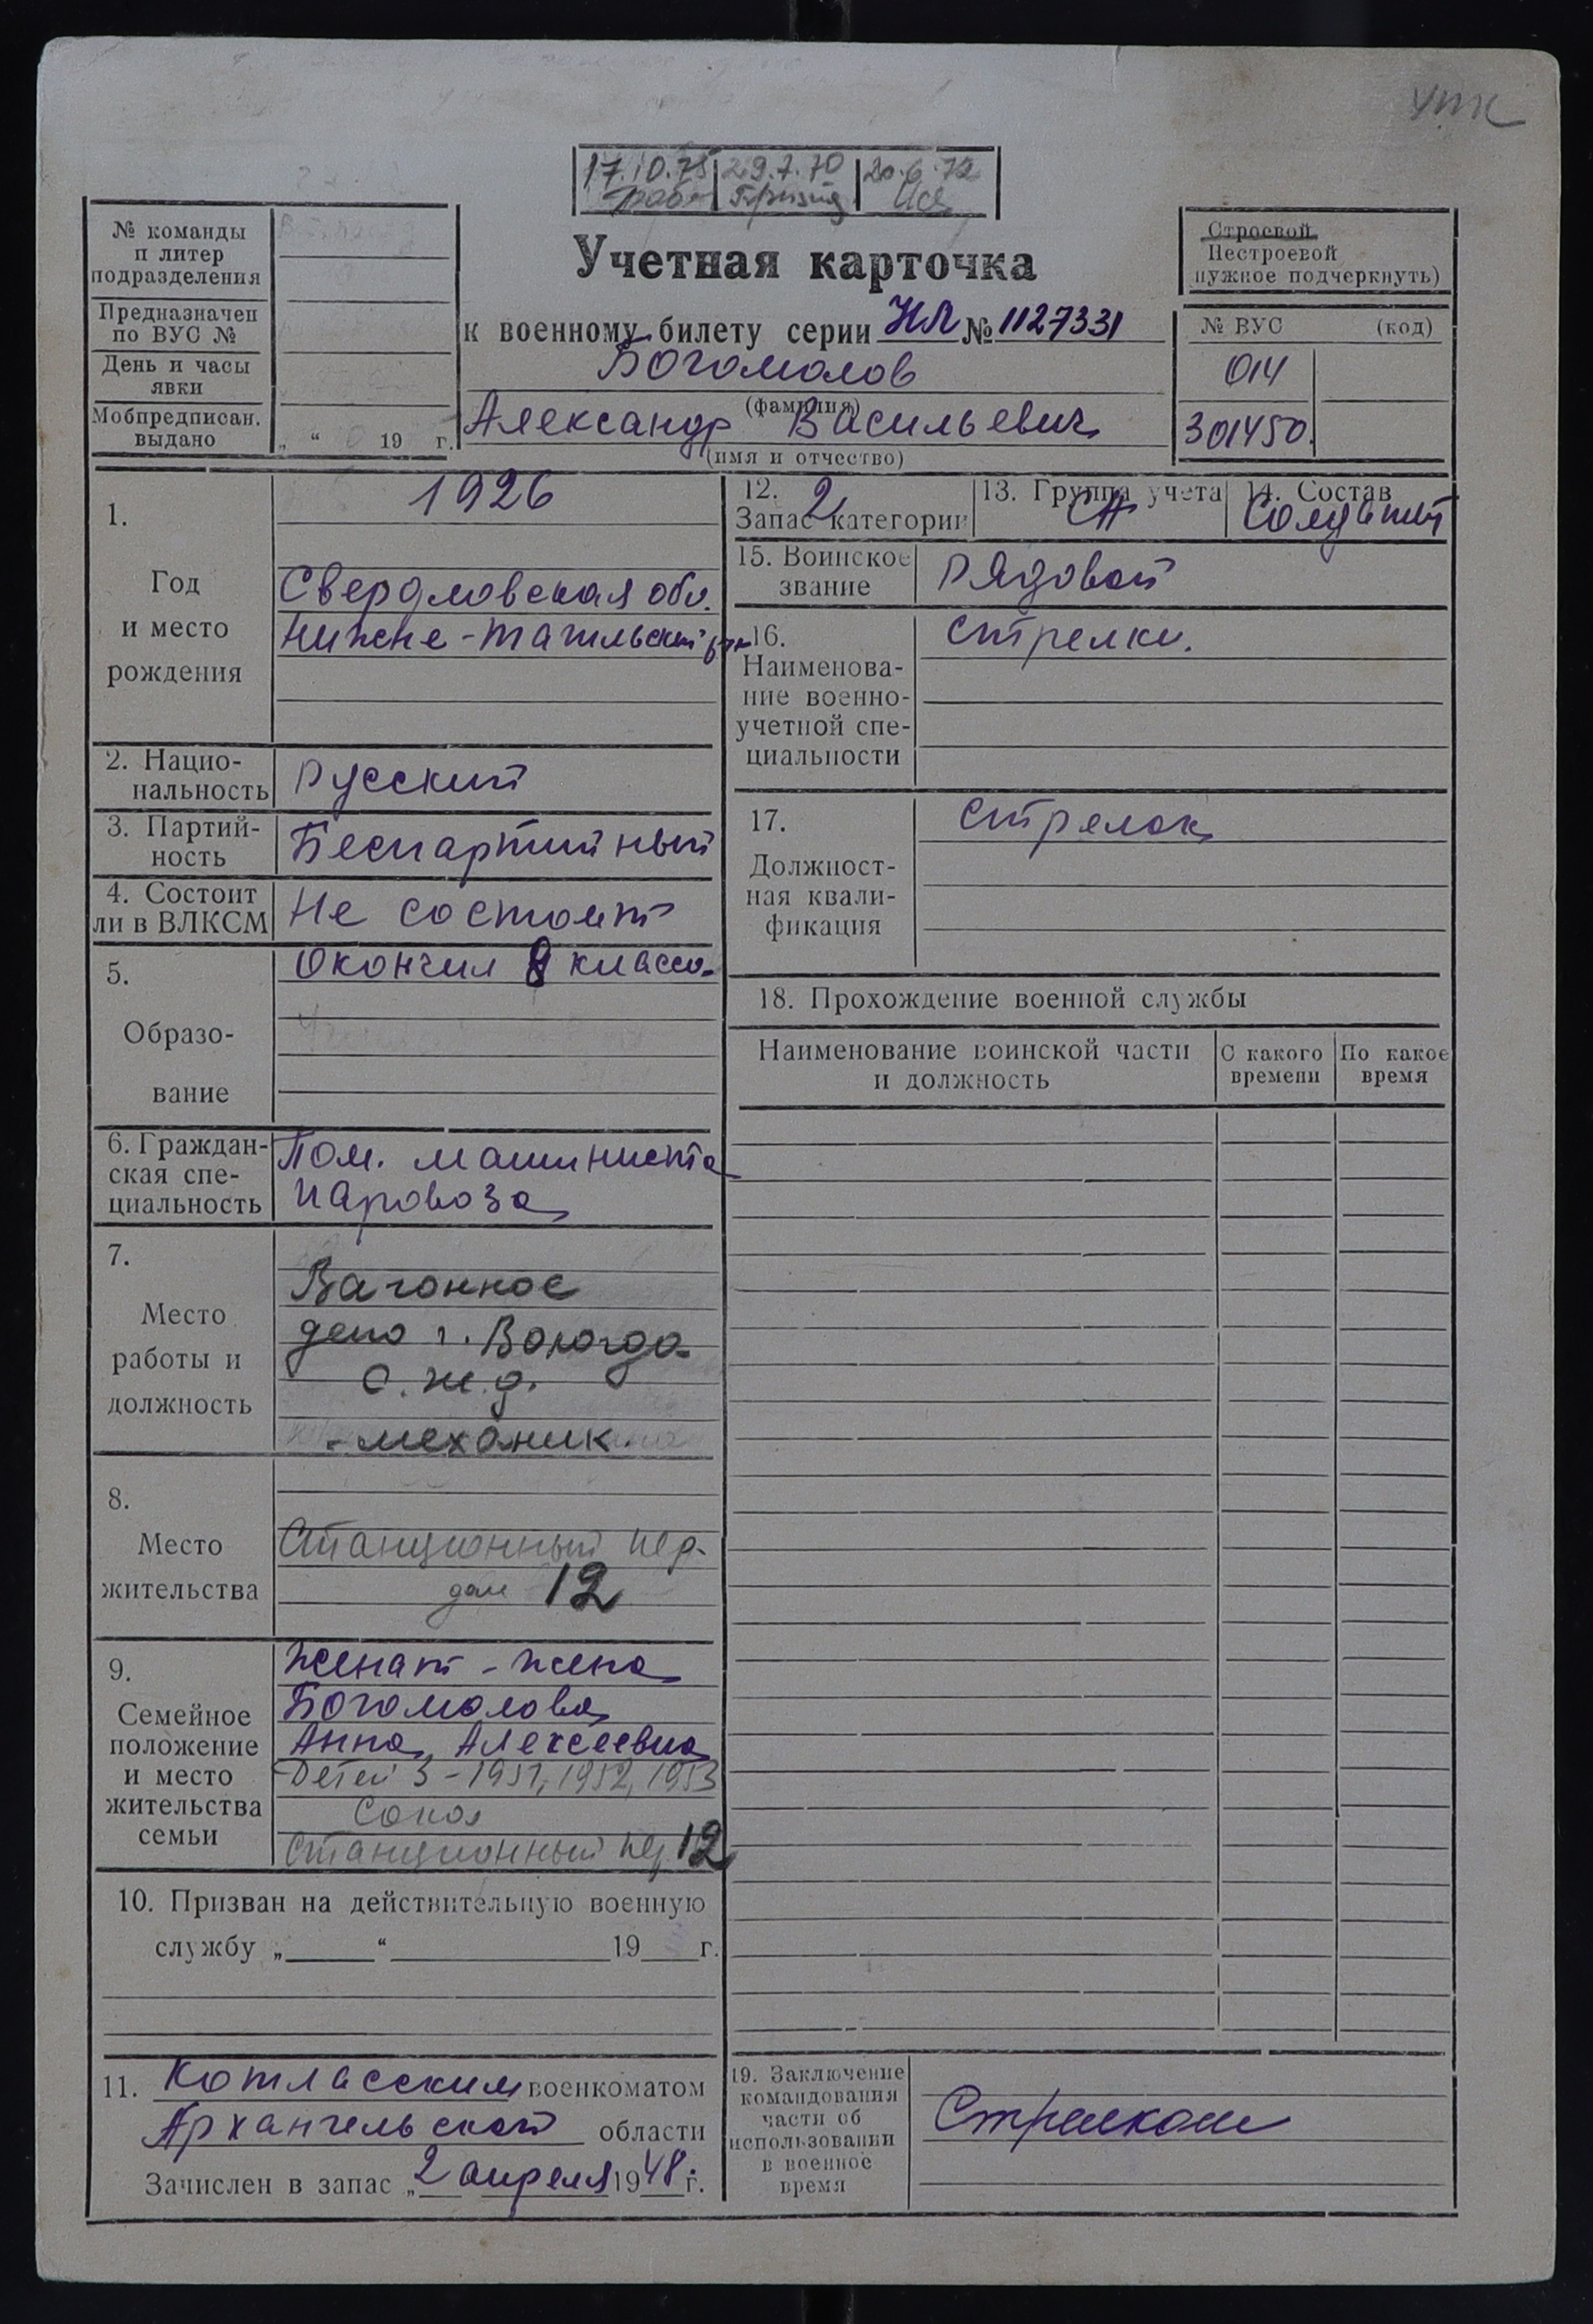 упк
17.10.75 29.7.70 20.6.72
№ команды
и литер
подразделения
Предназначен
по ВУС №
День и часы
явки
Мобпредписан.
выдано
„ “ 19 г.
Учетная карточка
к военному билету серии НЛ № 1127331
Богомолов
(фамилия)
Александр Васильевич
(имя и отчество)
Строевой
Нестроевой
нужное подчеркнуть)
№ ВУС (код)
014
301450.
1.
Год
и место
рождения
1926
Свердловская обл.
Нижне-Тагильский р-н
2. Нацио-
нальность
Русский
3. Партий-
ность
Беспартийный
4. Состоит
ли в ВЛКСМ
Не состоит
5.
Образо-
вание
Окончил 8 класса
6. Граждан-
ская спе-
циальность
Пом. машиниста
паровоза
7.
Место
работы и
должность
Вагонное
депо г. Вологда
С.ж.д.
- механик
8.
Место
жительства
Станционный пер.
дом 12
9.
Семейное
положение
и место
жительства
семьи
Женат - жена
Богомолова
Анна Алексеевна
Детей 3 - 1951, 1952, 1953
Сокол
Станционный пер 12
10. Призван на действительную военную
службу „ “ 19 г.
11. Котласским военкоматом
Архангельской области
Зачислен в запас „2 апреля 1948 г.
12. 2
Запас категории
13. Группа учета
СА
14. Состав
Солдат
15. Воинское
звание
Рядовой
16.
Наименова-
ние военно-
учетной спе-
циальности
стрелки.
17.
Должност-
ная квали-
фикация
стрелок
18. Прохождение военной службы
Наименование воинской части
и должность
С какого
времени
По какое
время
19. Заключение
командования
части об
использовании
в военное
время
Стрелком